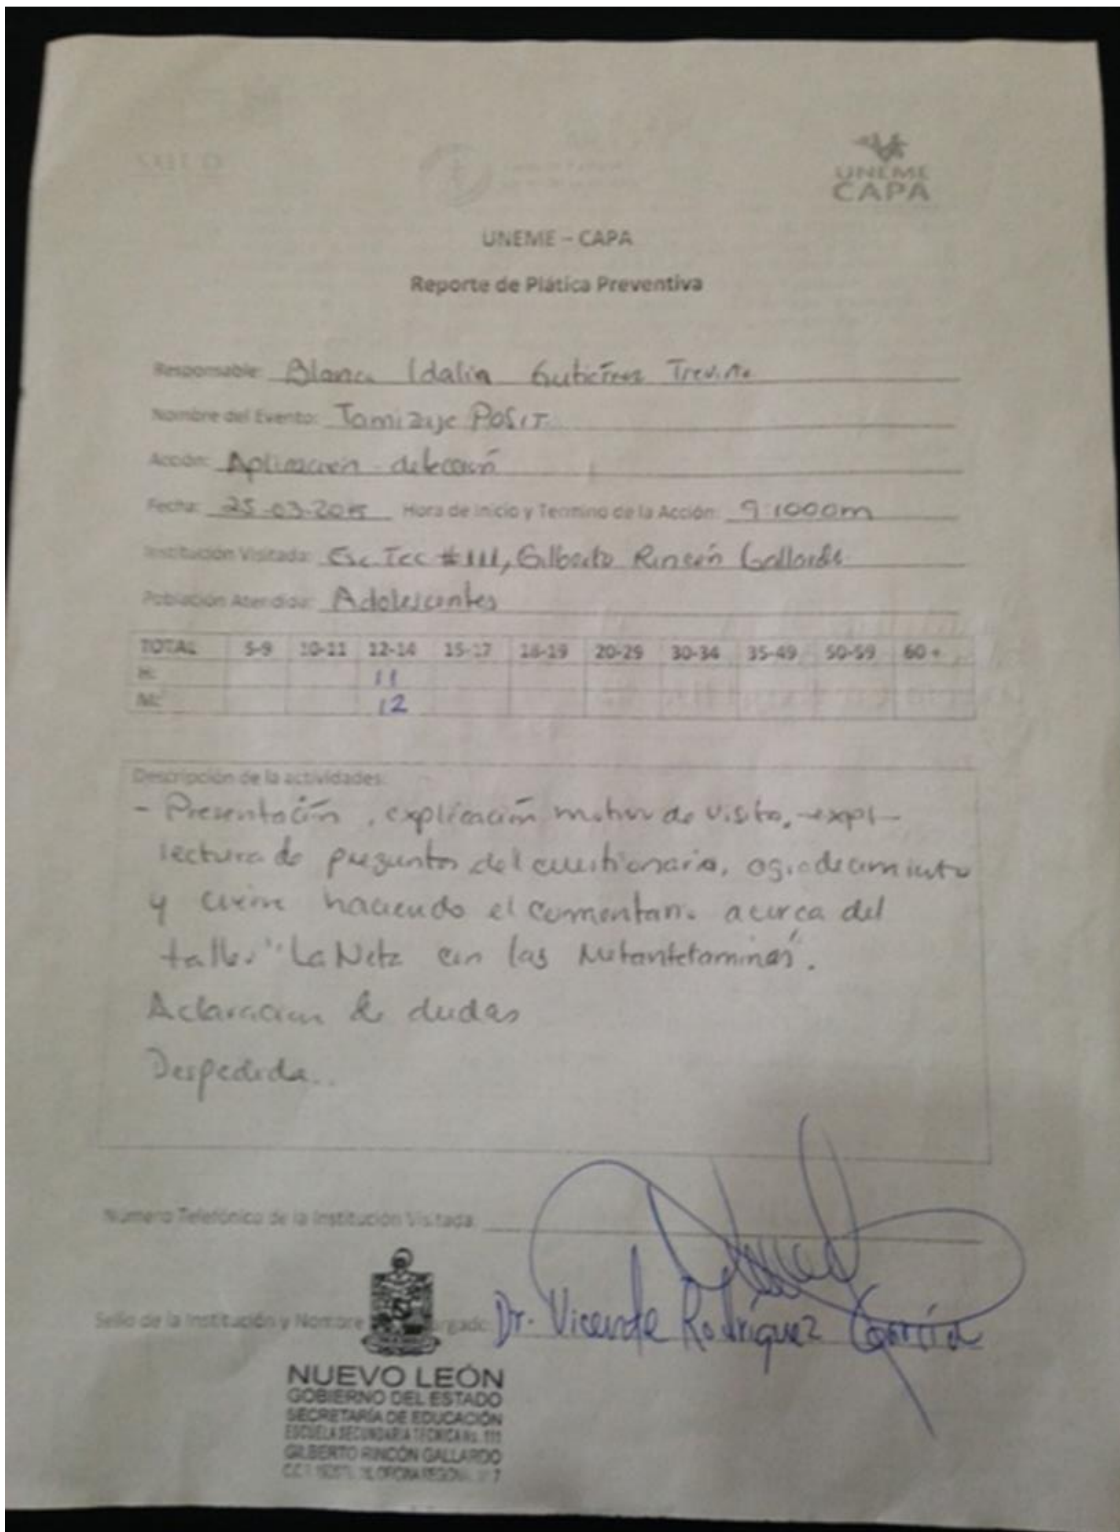 SALUD
UNEME
CAPA
UNEME – CAPA
Reporte de Plática Preventiva
Responsable: Blanca Idalia Gutiérrez Treviño
Nombre del Evento: Tamizaje POSIT
Acción: Aplicación - detección
Fecha: 25-03-2015 Hora de Inicio y Termino de la Acción: 9:1000m
Institución Visitada: Esc. Tec #111, Gilberto Rincón Gallardo
Población Atendida: Adolescentes
TOTAL 5-9 10-11 12-14 15-17 18-19 20-29 30-34 35-49 50-59 60 +
H: 11
M: 12
Descripción de la actividades:
- Presentación, explicación motivo de visita, expl
lectura de preguntas del cuestionario, agradecimiento
y cierre haciendo el comentario acerca del
taller "La Neta con las Metanfetaminas".
Aclaracion de dudas
Despedida..
Número Telefónico de la Institución Visitada:
Sello de la Institución y Nombre rgado: Dr. Vicente Rodríguez García
NUEVO LEÓN
GOBIERNO DEL ESTADO
SECRETARÍA DE EDUCACIÓN
ESCUELA SECUNDARIA TECNICA No. 111
GILBERTO RINCÓN GALLARDO
OFICINA REGIONAL 7